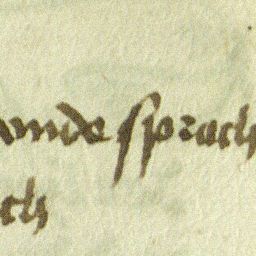 vnde sprach
ch